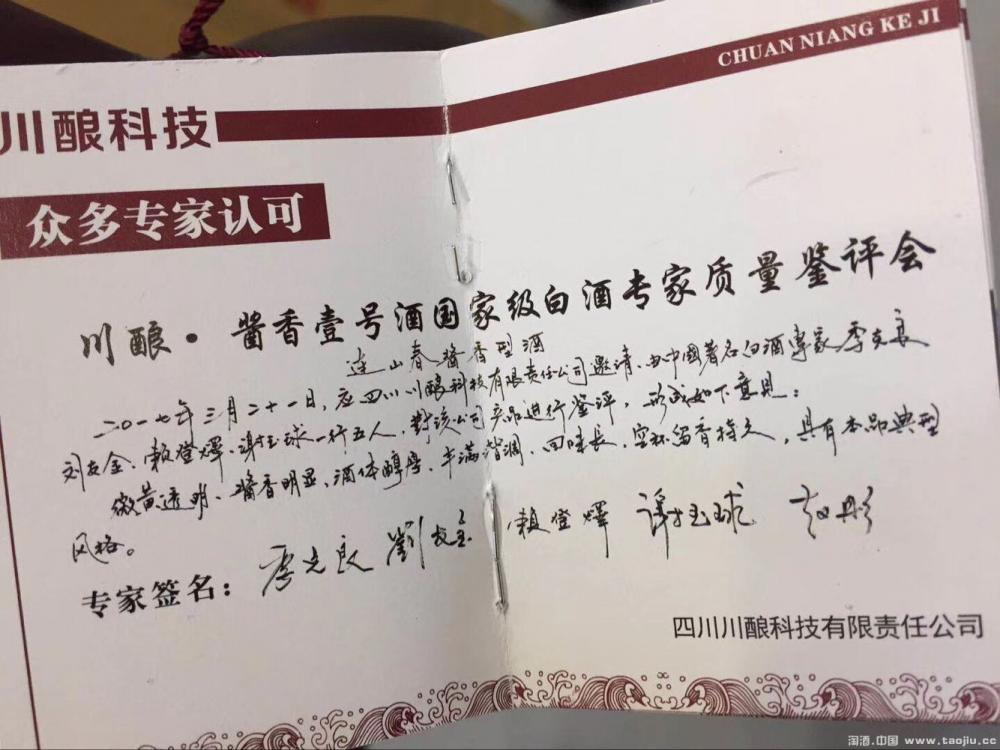 CHUAN NIANG KE JI
川酿科技
众多专家认可
川酿·酱香壹号酒国家级白酒专家质量鉴评会
连山春酱香型酒
二〇一七年三月二十一日,应四川川酿科技有限责任公司邀请、由中國著名白酒專家李克良
刘友金、賴登燡、谢玉球一行五人,對该公司产品进行鉴评,形成如下意見:
微黄透明、酱香明显、酒体醇厚、丰满谐调、回味长、空杯留香持久,具有本品典型
风格。
专家签名:李克良 劉友金 賴登燡 谢玉球 赵彤
四川川酿科技有限责任公司
淘酒.中国 www.taojiu.cc